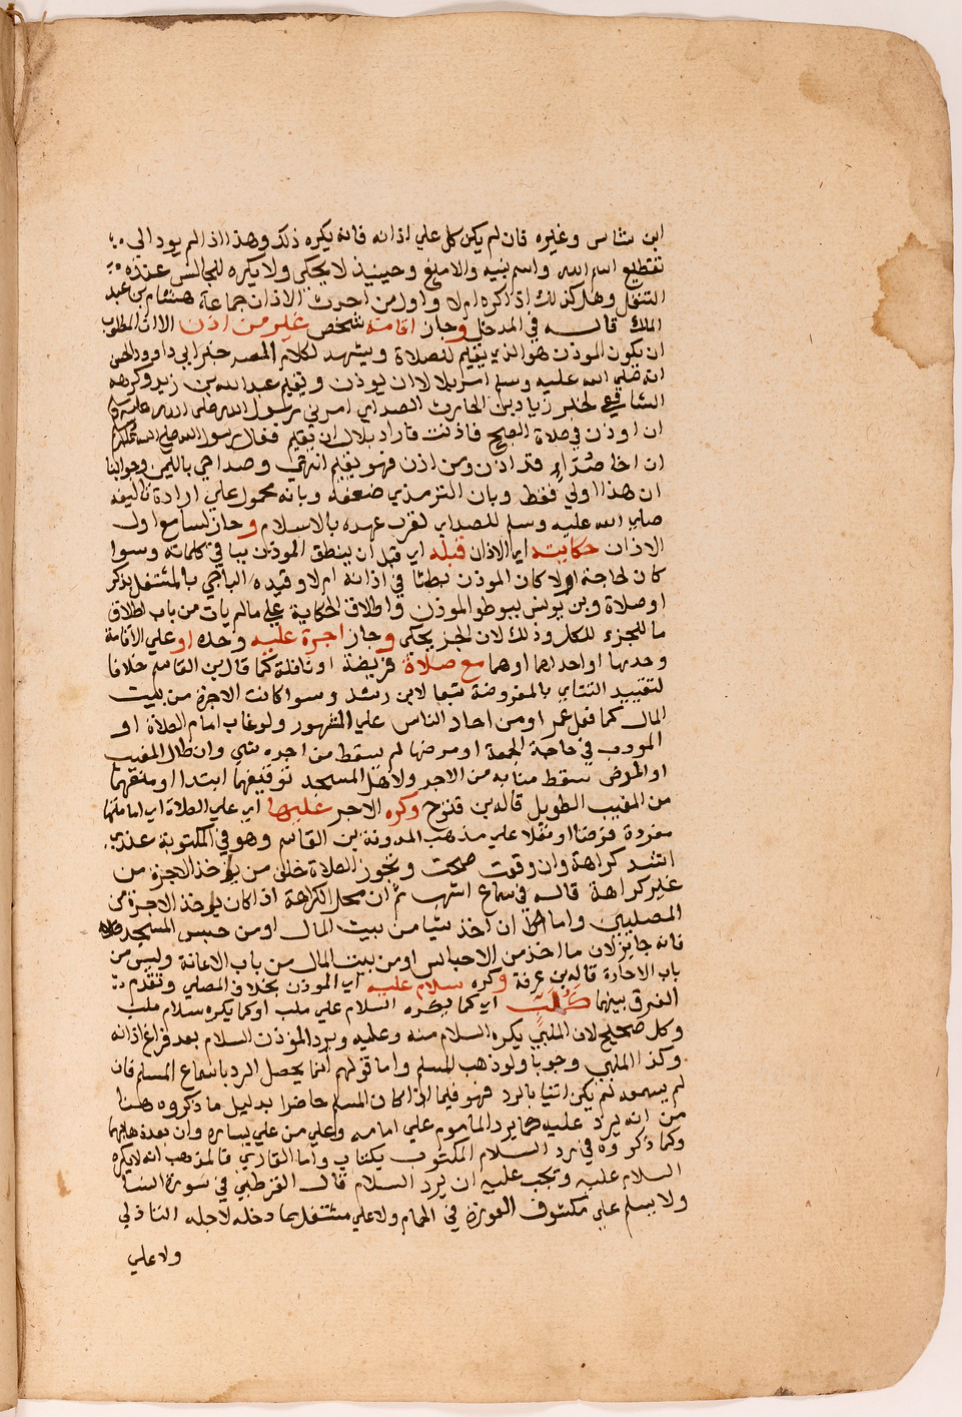 ابن شاس وغيره فان لم يكن كل علي اذانه فانه يكره ذلك وهذا اذا لم يود الي
تقطيع اسم الله واسم نبيه والا منع وحينيذ لا يحكي ولا يكره للجالس عنده
التنفل وهل كذلك اذا كره ام لا واول من احدث الاذان جماعة هشام بن عبد
الملك قاله في المدخل وجاز اقامة شخص غير من اذن الا ان المطلوب
ان يكون الموذن هو الذي يقيم للصلاة ويشهد لكلام المصر خبر ابي داوود
انه صلي الله عليه وسلم امر بلالا ان يوذن ويقيم عبد الله بن زيد وكرهه
الشافعي لخبر زياد بن الحارث الصداي امرني رسول الله صلي الله عليه وسلم
ان اوذن في صلاة الصبح فاذنت فاراد بلال ان يقيم فقال رسول الله صلي الله
ان اخا صداء قد اذن ومن اذن فهو يقيم انتهي وصدا حي باليمن وجوابنا
ان هذا اولي فقط وبان الترمذي ضعفه وبانه محمول علي ارادة تاليفه
صلي الله عليه وسلم للصداي لقرب عهده بالاسلام وجاز لسامع اول
الاذان حكايته اي الاذان قبله اي قبل ان ينطق الموذن بباقي كلماته وسوا
كان لحاجة او لا كان الموذن بطئا في اذانه ام لا وقيده الباجي بالمشتغل بذكر
او صلاة وبن يونس ببوطو الموذن واطلاق الحكاية علي مالم يات من باب اطلاق
ما للجزء للكل وذلك لان الجز يحكي وجاز اجرة عليه وحده او علي الاقامة
وحدها او احداهما او هما مع صلاة فريضة او نافلة كما قال بن القاسم خلافا
لتقييد التتاي بالمفروضة تبعا لابن رشد وسوا كانت الاجرة من بيت
المال كما فعل عمر او من احاد الناس علي المشهور ولو غاب امام الصلاة او
الموذن في حاجة الجمعة او مرضها لم يسقط من اجره شي وان طال المغيب
او المرض سقط منابه من الاجر ولاهل المسجد توقيفهما ابتدا او منعهما
من المغيب الطويل قاله بن فتوح وكره الاجر عليها اي علي الصلاة اي امامتها
مفردة فرضا او نفلا علي مذهب المدونة بن القاسم وهو في المكتوبة عندي
اشد كراهة وان وقعت صحت وتجوز الصلاة خلف من ياخذ الاجرة من
غير كراهة قاله في سماع اشهب ثم ان محل الكراهة اذا كان ياخذ الاجرة من
المصليين واما ان اخذ شيا من بيت المال او من حبس المسجد
فانه جايز لان ما اخذ من الاحباس او من بيت المال من باب الاعانة وليس من
باب الاجارة قاله بن عرفة وكره سلام عليه اي الموذن بخلاف المصلي وتقدم
الفرق بينهما كملب اي كما يكره السلام علي ملب او كما يكره سلام ملب
وكل صحيح لان الملبي يكره السلام منه وعليه ويرد الموذن السلام بعد فراغ اذانه
وكذا الملبي وجوبا ولو ذهب المسلم واما قولهم انما يحصل الرد باسماع المسلم فان
لم يسمعه لم يكن اتيا بالرد فهو فيما اذا كان المسلم حاضرا بدليل ما ذكروه هنا
من انه يرد عليه كما يرد الماموم علي امامه وعلي من علي يساره وان بعد ذهابهما
وكما ذكروه في رد السلام المكتوب بكتاب واما القاري فالمذهب انه لا يكره
السلام عليه وتجب عليه ان يرد السلام قال القرطبي في سورة النسا
ولا يسلم علي مكشوف العورة في الحمام ولا علي مشتغل بما دخله لاجله الشاذلي
ولا علي